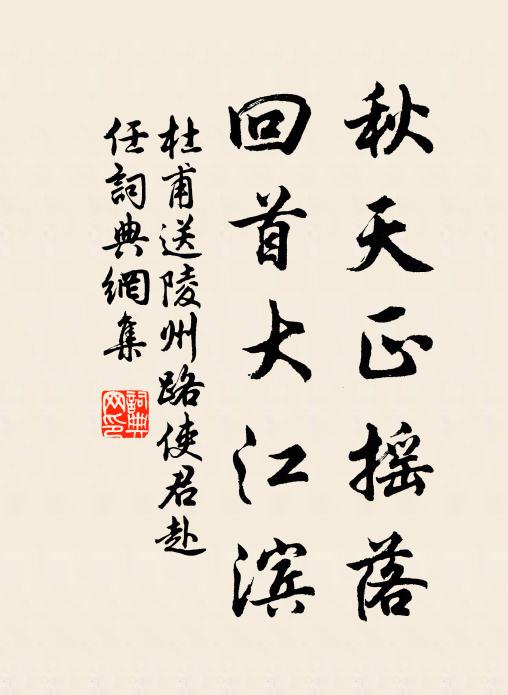 秋天正摇落
回首大江滨
杜甫送陵州路使君赴
任詞典網集
詞典
网印